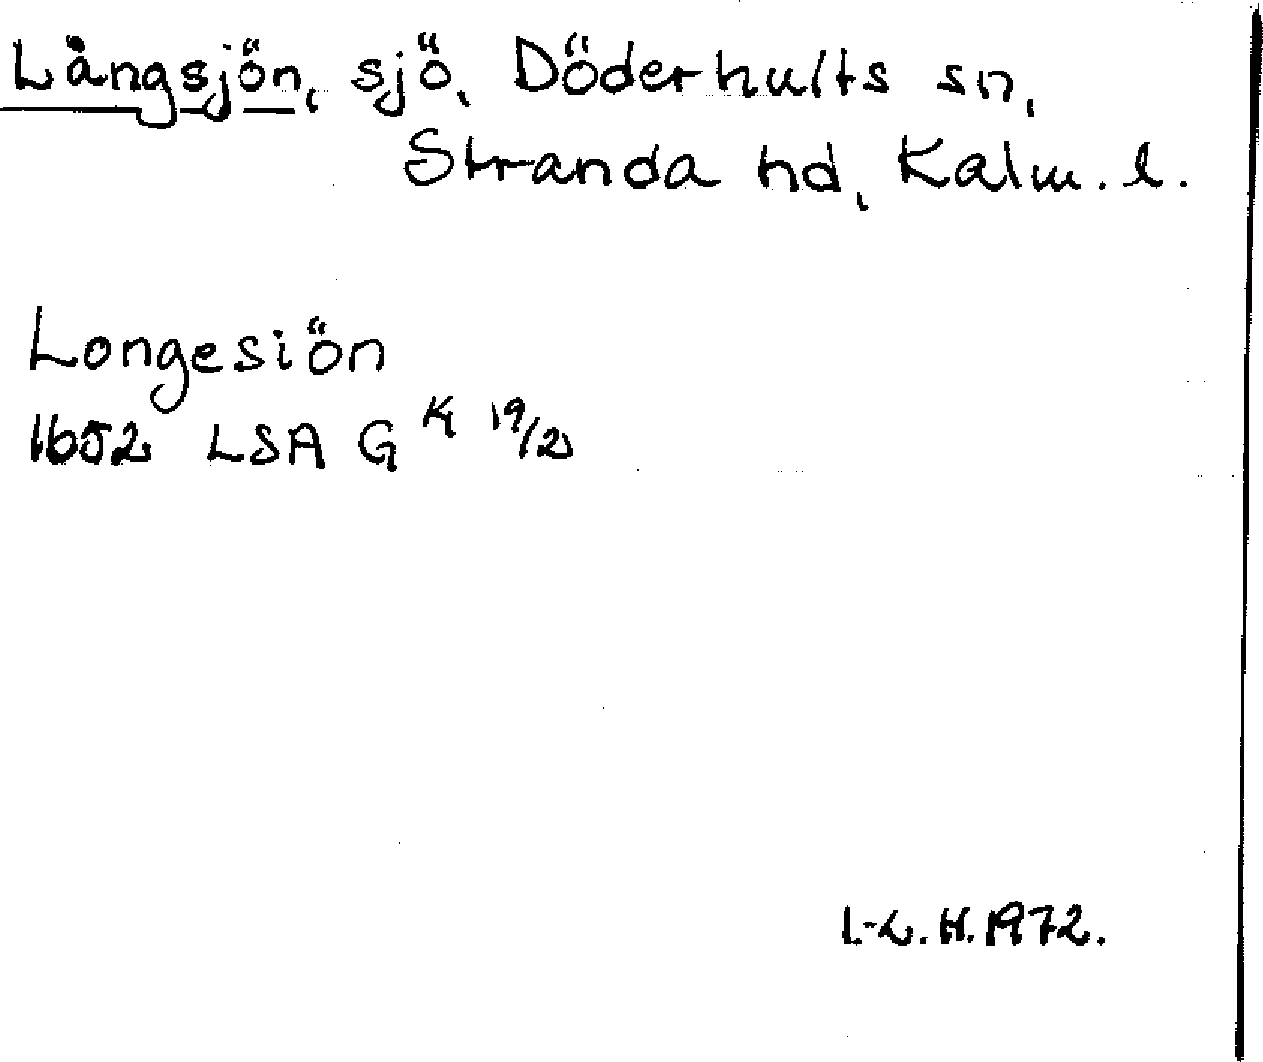 Långsjön, sjö, Döderhults sn,
Stranda hd, Kalm. l.
Longesiön
1652 LSA G K 19/2
I.-L. H. 1972.